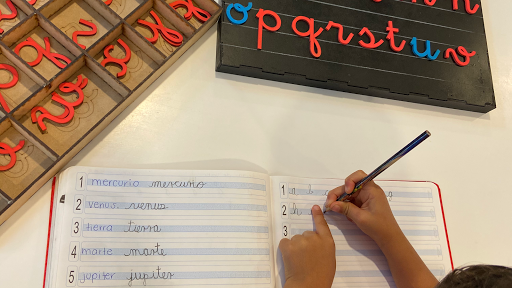 o p q r s t u v
1 mercurio mercurio
2 venus venus
3 tierra
4 marte marte
5 jupiter jupiter
1
2 h
3